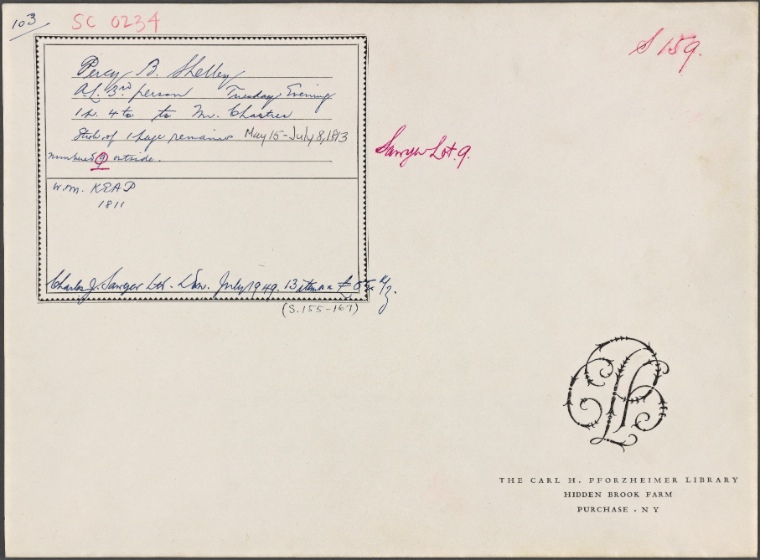 103 SC 0234
S 159.
Percy B. Shelley
AL. 3rd person Tuesday Evening
1 p. 4to to Mr. Charters
Stub of 1 page remains May 15-July 8, 1813
Numbered 9 outside.
Sawyer Lot. 9.
W.M. KEAP
1811
Charles J. Sawyer Ltd. Lon. July 1949. 13 items
(S.155-167)
THE CARL H. PFORZHEIMER LIBRARY
HIDDEN BROOK FARM
PURCHASE . N Y